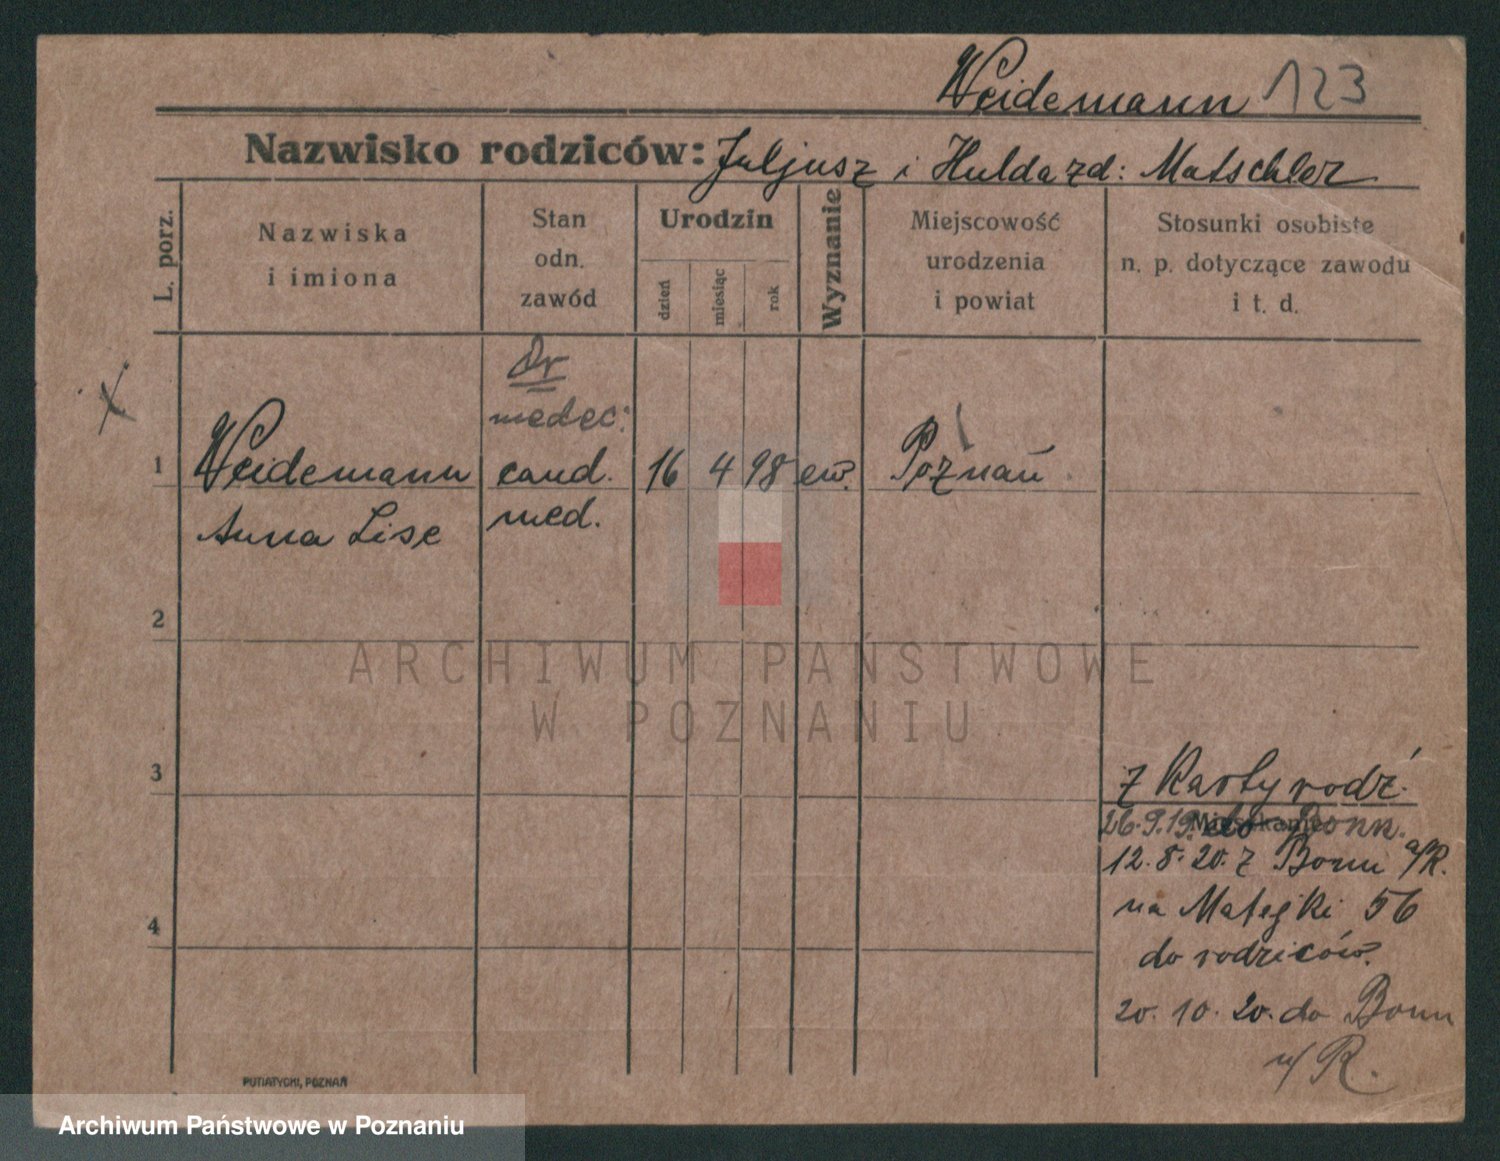 Weidemann 123
Nazwisko rodziców: Juljusz i Hulda zd: Matschler
L. porz.
Nazwiska
i imiona
Stan
odn.
zawód
Urodzin
dzień
miesiąc
rok
Wyznanie
Miejscowość
urodzenia
i powiat
Stosunki osobiste
n. p. dotyczące zawodu
i t. d.
Dr
medec:
1 Weidemann cand. 16 4 98 ew. Poznań
Anna Lise med.
2
ARCHIWUM PAŃSTWOWE
W POZNANIU
3
z Karty rodź.
Mieszkanie
26.9.19. do Bonn.
12.8.20. z Bonn a/R.
na Matejki 56
4
do rodziców.
20.10.20. do Bonn
n/R.
PUTIATYCKI, POZNAŃ
Archiwum Państwowe w Poznaniu